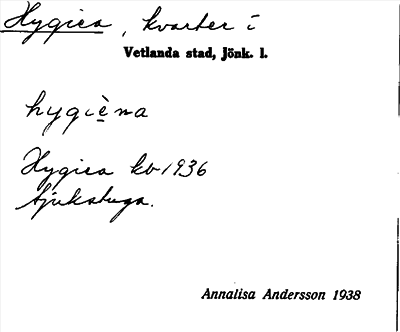 Hygiea, kvarter i
Vetlanda stad, Jönk. l.
hygièna
Hygiea kv 1936
Sjukstuga.
Annalisa Andersson 1938